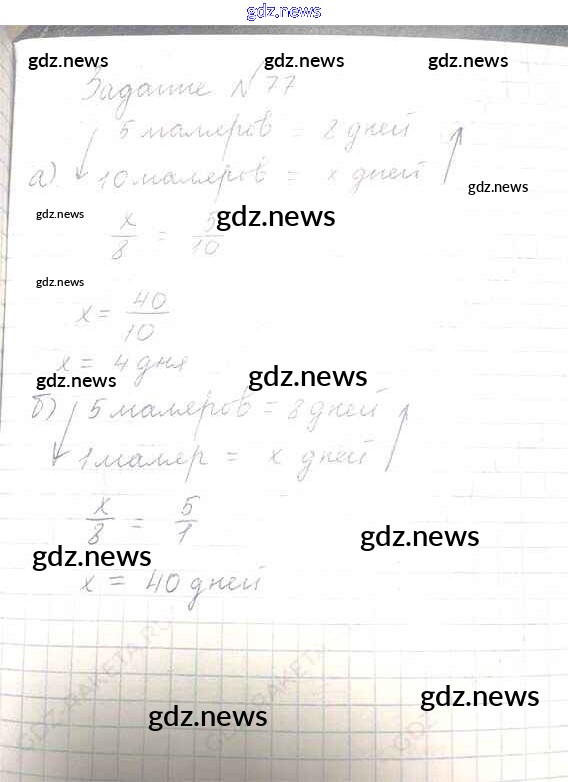 gdz.news
gdz.news gdz.news gdz.news
Задание №77
5 маляров = 8 дней
а) 10 маляров = x дней
gdz.news
gdz.news gdz.news
x/8 = 5/10
gdz.news
x = 40/10
x = 4 дня
gdz.news gdz.news
б) 5 маляров = 8 дней
1 маляр = x дней
x/8 = 5/1
gdz.news
gdz.news
x = 40 дней
GDZ-RAKETA.RU
GDZ-RAKETA
gdz.news
gdz.news
GDZ